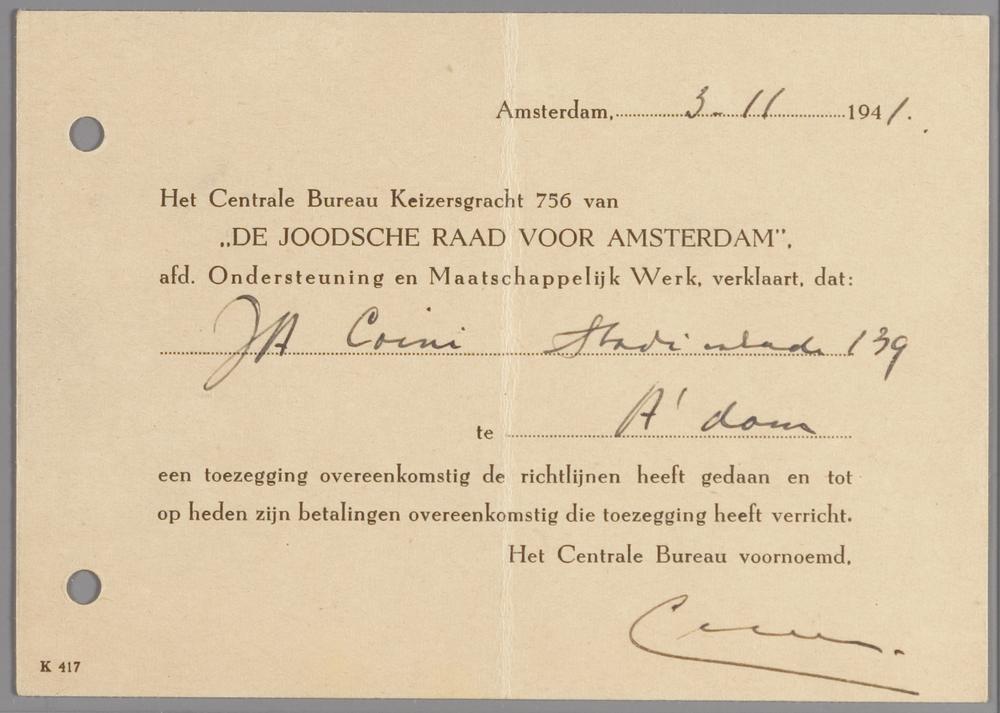 Amsterdam, 3-11 1941.
Het Centrale Bureau Keizersgracht 756 van
„DE JOODSCHE RAAD VOOR AMSTERDAM”,
afd. Ondersteuning en Maatschappelijk Werk, verklaart, dat:
JA Coini 139
te A'dam
een toezegging overeenkomstig de richtlijnen heeft gedaan en tot
op heden zijn betalingen overeenkomstig die toezegging heeft verricht.
Het Centrale Bureau voornoemd,
K 417